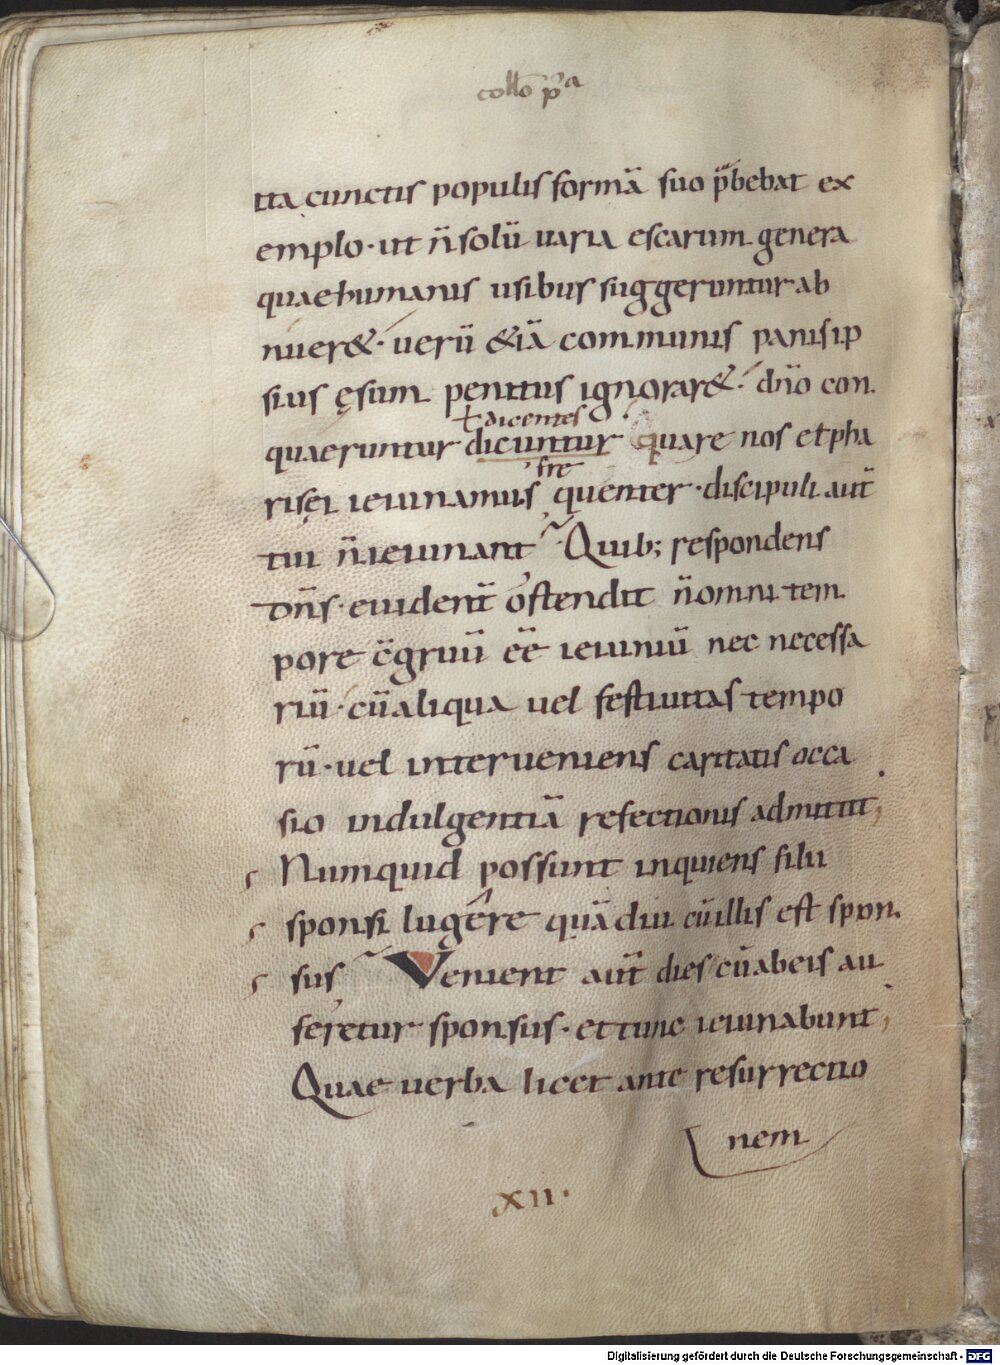 collõ pᵃ
tta cunctis populis formã suo p̃bebat ex
emplo · ut ñ solũ uaria escarum genera
quae humanis usibus suggeruntur ab
nuer& · uerũ &iã communis panis ip
sius ęsum penitus ignorar& · dño con
+ dicentes
quaeruntur dicuntur quare nos et pha
fre
risęi ieiunamus quenter · discipuli aut̃
tui ñ ieiunant Quib; respondens
dñs · euident̃ ostendit ñ omni tem
pore c̃gruũ eẽ ieiuniũ nec necessa
riũ · cũ aliqua uel festiuitas tempo
rũ · uel interueniens caritatis occa
sio indulgentiã refectionis admittit;
Numquid possunt inquiens filii
sponsi lugere quãdiu cũ illis est spon
sus Venient aut̃ dies cũ ab eis au
feretur sponsus · et tunc ieiunabunt;
Quae uerba licet ante resurrectio
nem
XII·
Digitalisierung gefördert durch die Deutsche Forschungsgemeinschaft - DFG